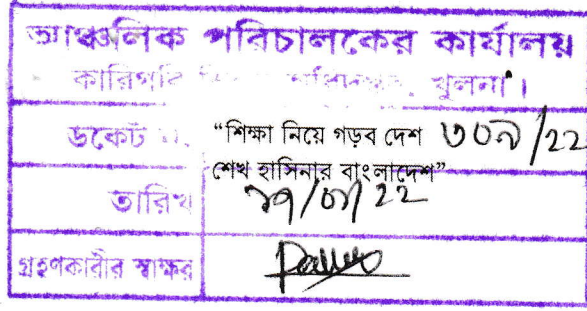 আঞ্চলিক পরিচালকের কার্যালয়
কারিগরি অধিদপ্তর, খুলনা।
ডকেট
“শিক্ষা নিয়ে গড়ব দেশ
৩০৯/22
শেখ হাসিনার বাংলাদেশ”
তারিখ
গ্রহণকারীর স্বাক্ষর